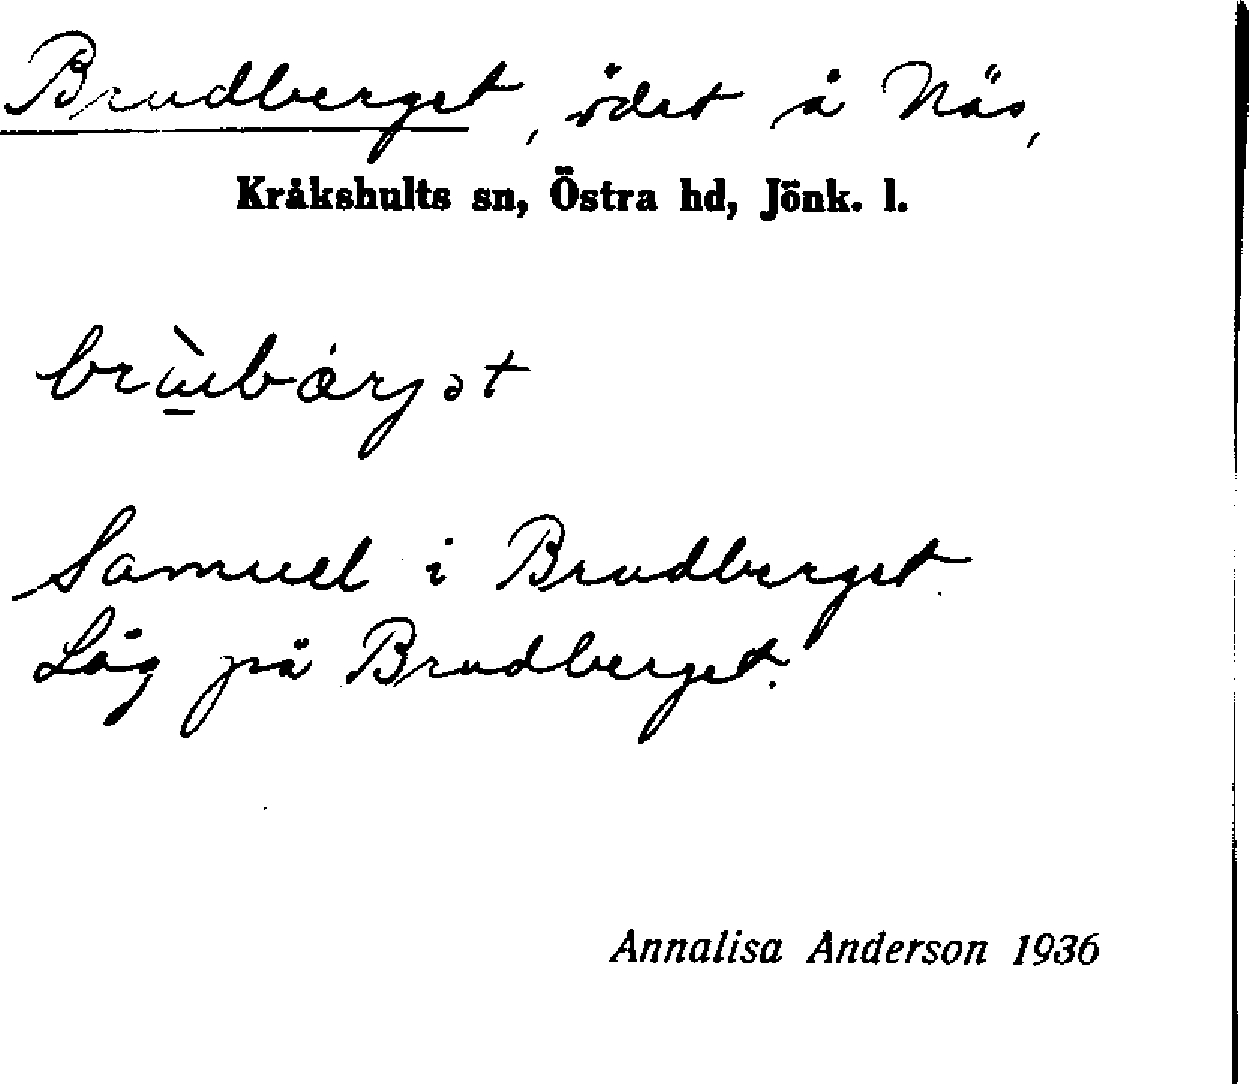 Brudberget, ödet å Näs,
Kråkshults sn, Östra hd, Jönk. l.
brùu̲bárjət
Samuel i Brudberget.
Låg på Brudberget.
Annalisa Anderson 1936